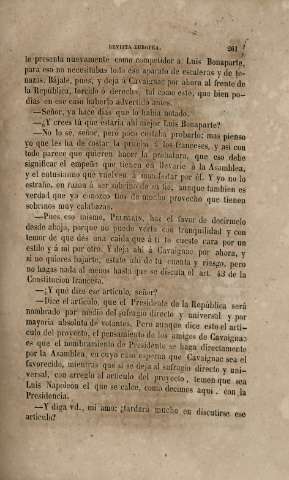 REVISTA EUROPEA. 261
le presenta nuevamente como competidor a Luis Bonaparte,
para eso no necesitabas todo ese aparato de escaleros y de te-
nazas. Bájale, pues, y deja á Cavaignac por ahora al frente de
la República, torcido ó derecho, tal como esté, que bien po-
dias en ese caso haberlo advertido antes.
—Señor, ya hace dias que lo habia notado.
—¿Y crees tú que estaria ahi mejor Luis Bonaparte?
—No lo se, señor, pero poco costaba probarlo: mas pienso
yo que les ha de costar la prueba á los franceses, y asi con
todo parece que quieren hacer la probatura, que eso debe
significar el empeño que tienen en llevarle á la Asamblea,
y el entusiasmo que vuelven á manifestar por él. Y yo no lo
estraño, en razon á ser sobrino de su tio, aunque tambien es
verdad que yo conozco tios de mucho provecho que tienen
sobrinos muy calabazas.
—Pues eso mismo, PELEGRIN, haz el favor de decírmelo
desde abajo, porque no puedo verte con tranquilidad y con
temor de que dés una caida que á ti te cueste cara por un
estilo y á mi por otro. Y deja ahi á Cavaignac por ahora, y
si no quieres bajarte, estate ahi de tu cuenta y riesgo, pero
no hagas nada al menos hasta que se discuta el art. 43 de la
Constitucion francesa.
—¿Y qué dice ese artículo, señor?
—Dice el artículo, que el Presidente de la República será
nombrado por medio del sufragio directo y universal y por
mayoria absoluta de votantes. Pero aunque dice esto el artí-
culo del proyecto, el pensamiento de los amigos de Cavaignac
es que el nombramiento de Presidente se haga directamente
por la Asamblea, en cuyo caso esperan que Cavaignac sea el
favorecido, mientras que si se deja al sufragio directo y uni-
versal, con arreglo al artículo del proyecto, temen que sea
Luis Napoleon el que se calce, como decimos aqui, con la
Presidencia.
—Y diga vd., mi amo: ¿tardará mucho en discutirse ese
artículo?